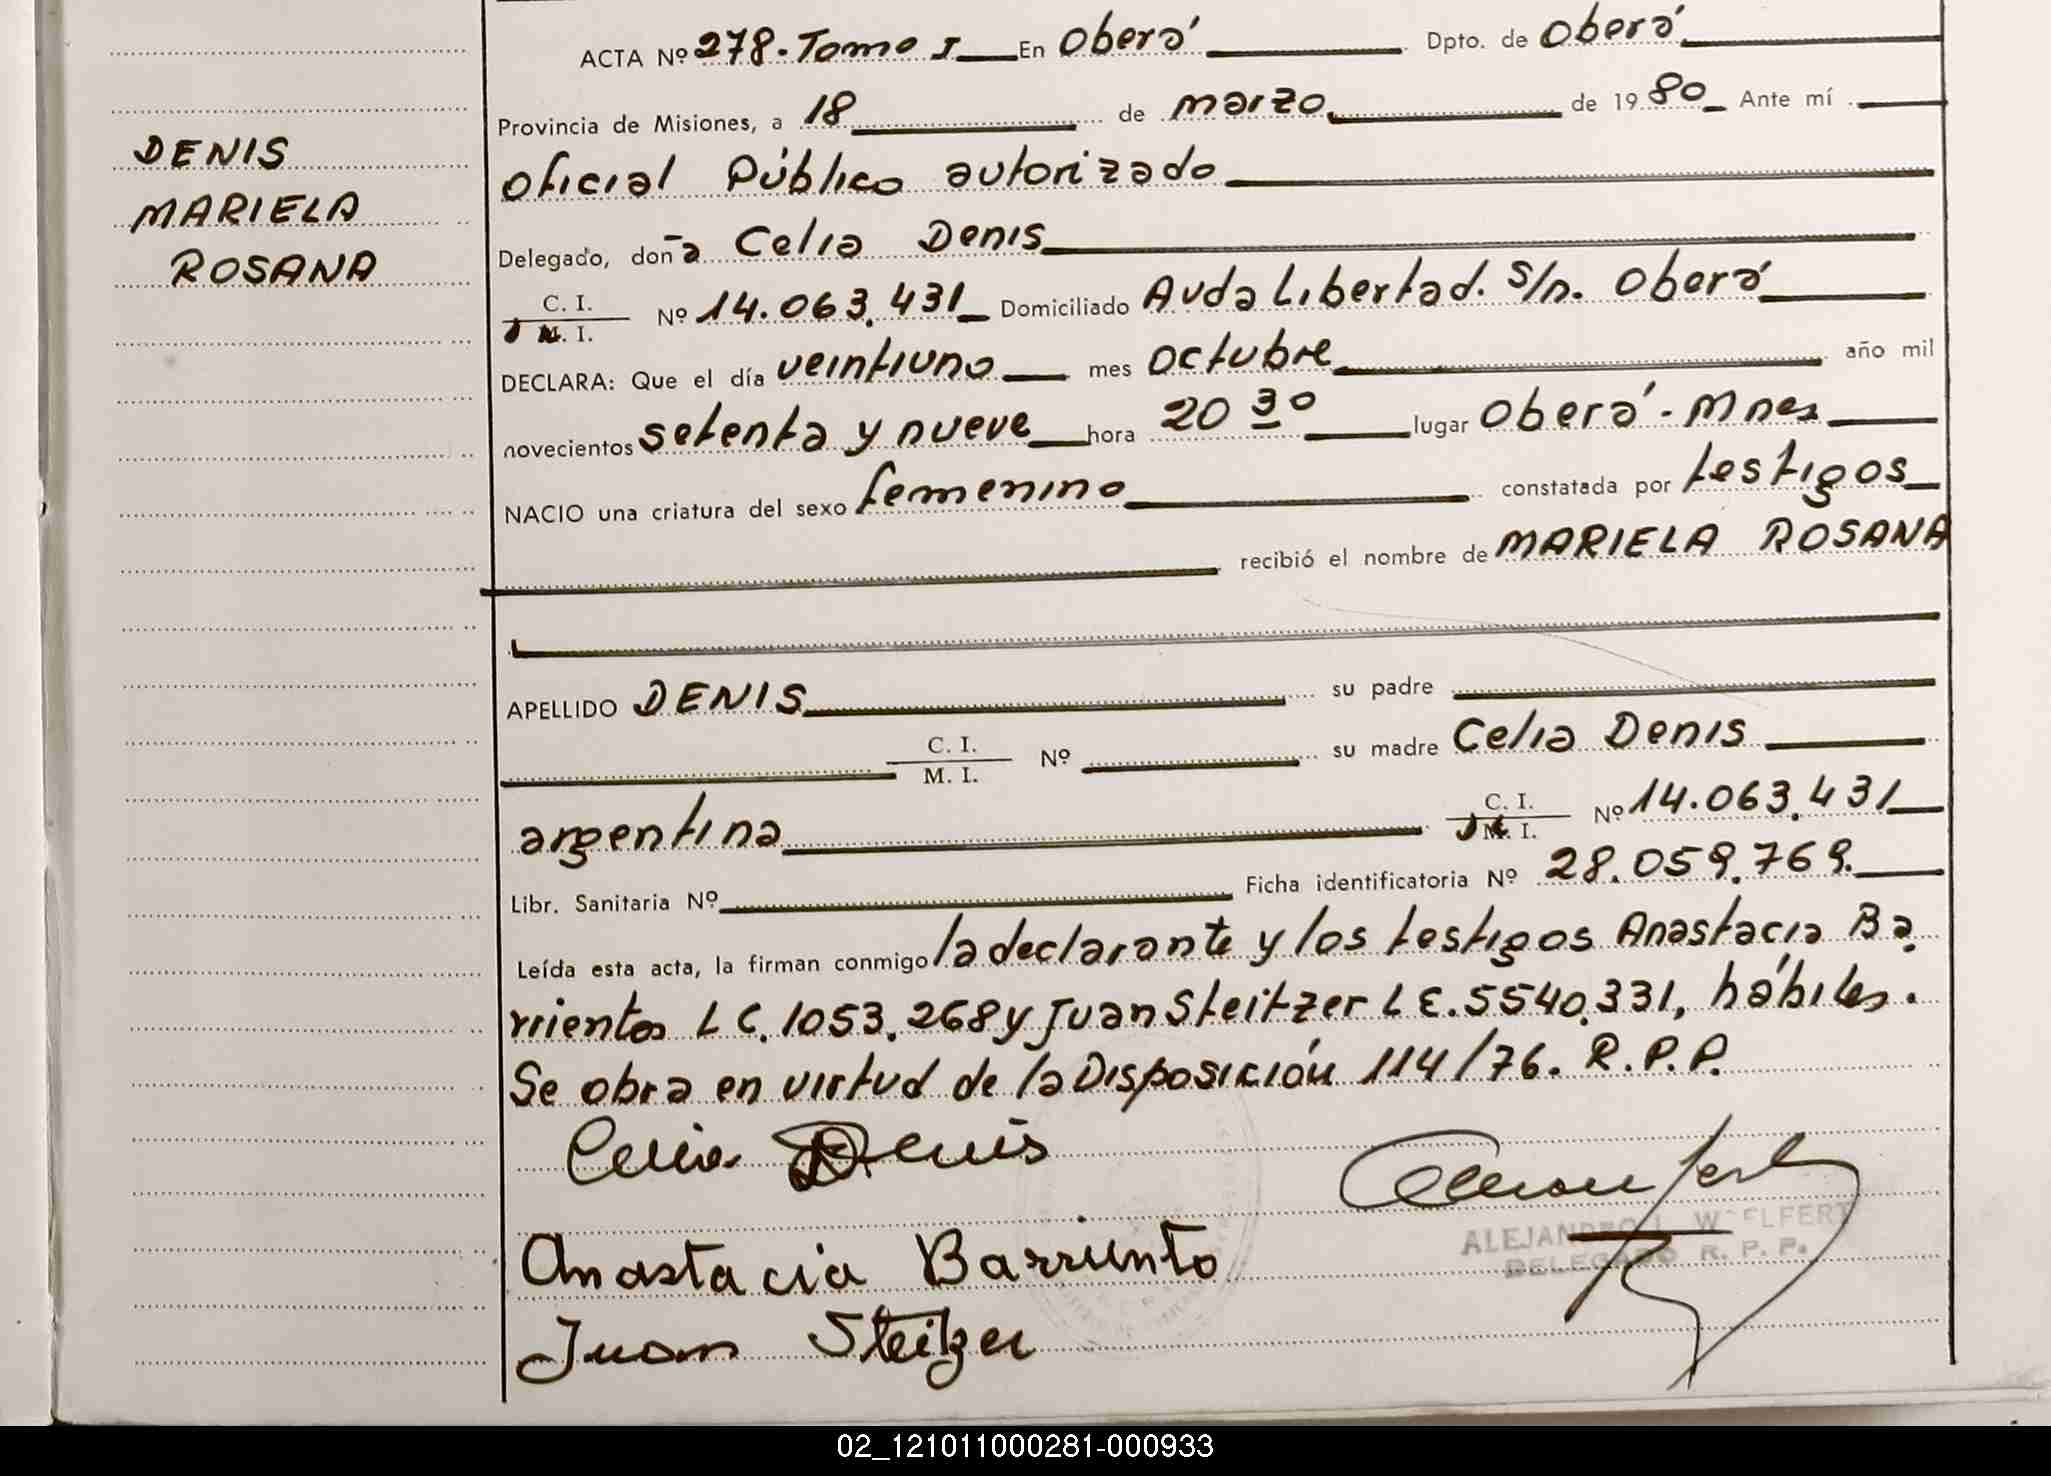 ACTA Nº 278 - Tomo I En Oberá Dpto. de Oberá
Provincia de Misiones, a 18 de marzo de 1980 Ante mí
DENIS
oficial Público autorizado
MARIELA
ROSANA
Delegado, doña Celia Denis
C. I.
M. I. Nº 14.063.431 Domiciliado Avda Libertad. s/n. Oberá
DECLARA: Que el día veintiuno mes octubre año mil
novecientos setenta y nueve hora 20 30 lugar Oberá - Mnes
NACIO una criatura del sexo femenino constatada por testigos
recibió el nombre de MARIELA ROSANA
APELLIDO DENIS su padre
C. I.
M. I. Nº su madre Celia Denis
argentina C. I.
M. I. Nº 14.063.431
Libr. Sanitaria Nº Ficha identificatoria Nº 28.059.769.
Leída esta acta, la firman conmigo la declarante y los testigos Anastacia Ba
rrientos L C. 1053.268 y Juan Steitzer L E. 5540.331, hábiles.
Se obra en virtud de la Disposición 114/76. R.P.P.
Celia Denis
Anastacia Barriento
ALEJANDRO L. WELFERT
DELEGADO R. P. P.
Juan Steitzer
02_121011000281-000933